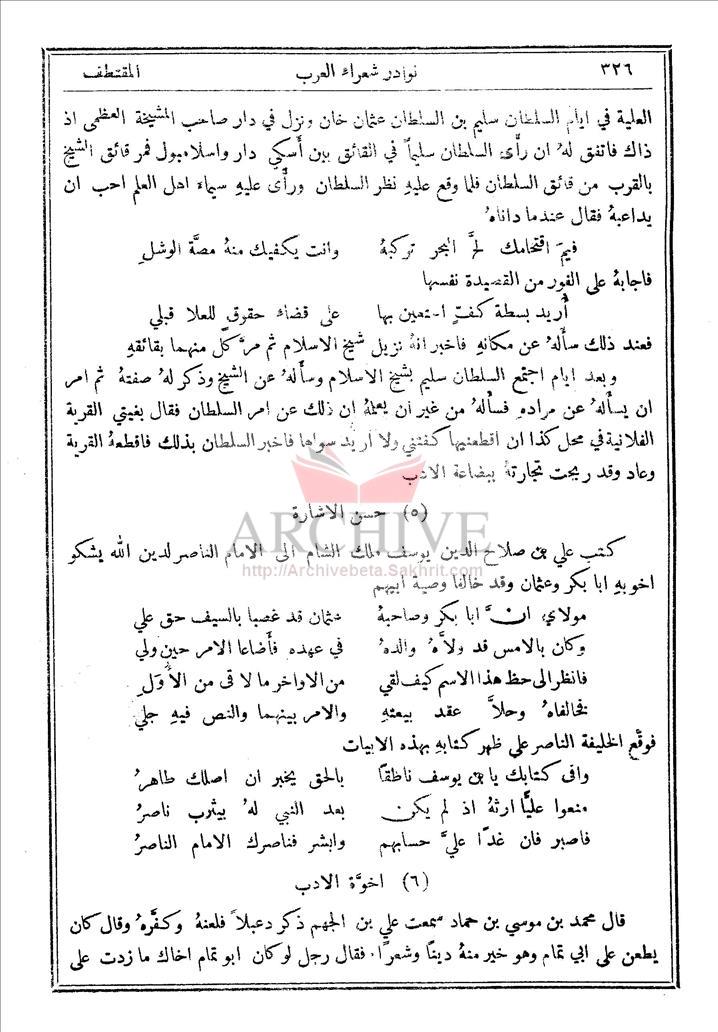 ٣٢٦ نوادر شعراء العرب المقتطف
العلية في ايام السلطان سليم بن السلطان عثمان خان ونزل في دار صاحب المشيخة العظمى اذ
ذاك فاتفق لهُ ان رأى السلطان سليماً في القائق بين أسكي دار واسلامبول فمر قائق الشيخ
بالقرب من قائق السلطان فلما وقع عليهِ نظر السلطان ورأى عليهِ سيماء اهل العلم احب ان
يداعبهُ فقال عندما داناهُ
فيمَ اقتحامك لجَّ البحر تركبهُ وانت يكفيك منهُ مصَّة الوشلِ
فاجابهُ على الفور من القصيدة نفسها
أريد بسطة كفٍّ استعين بها على قضاء حقوق للعلا قبلي
فعند ذلك سألهُ عن مكانهِ فاخبر انهُ نزيل شيخ الاسلام ثم مرَّ كلّ منهما بقائقهِ
وبعد ايام اجتمع السلطان سليم بشيخ الاسلام وسألهُ عن الشيخ وذكر لهُ صفتهُ ثم امر
ان يسألهُ عن مرادهِ فسألهُ من غير ان يعلمهُ ان ذلك عن امر السلطان فقال بغيتي القرية
الفلانية في محل كذا ان اقطعنيها كفتني ولا اريد سواها فاخبر السلطان بذلك فاقطعهُ القرية
وعاد وقد ربحت تجارتهُ ببضاعة الادب
(٥) حسن الاشارة
ARCHIVE
كتب علي بن صلاح الدين يوسف ملك الشام الى الامام الناصر لدين الله يشكو
http://Archivebeta.Sakhrit.com
اخويهِ ابا بكر وعثمان وقد خالفا وصية ابيهم
مولاي انَّ ابا بكر وصاحبهُ عثمان قد غصبا بالسيف حق علي
وكان بالامس قد ولاَّهُ والدهُ في عهده فأضاعا الامر حين ولي
فانظر الى حظ هذا الاسم كيف لقي من الاواخر ما لاقى من الأُوَلِ
فخالفاهُ وحلاَّ عقد بيعتهِ والامر بينهما والنص فيهِ جلي
فوقَّع الخليفة الناصر على ظهر كتابهِ بهذه الابيات
وافى كتابك يا بن يوسف ناطقًا بالحق يخبر ان اصلك طاهرُ
منعوا عليًّا ارثهُ اذ لم يكن بعد النبي لهُ بيثرب ناصرُ
فاصبر فان غدًا عليَّ حسابهم وابشر فناصرك الامام الناصرُ
(٦) اخوَّة الادب
قال محمد بن موسى بن حماد سمعت علي بن الجهم ذكر دعبلاً فلعنهُ وكفَّرهُ وقال كان
يطعن على ابي تمام وهو خير منهُ دينًا وشعرًا. فقال رجل لو كان ابو تمام اخاك ما زدت على